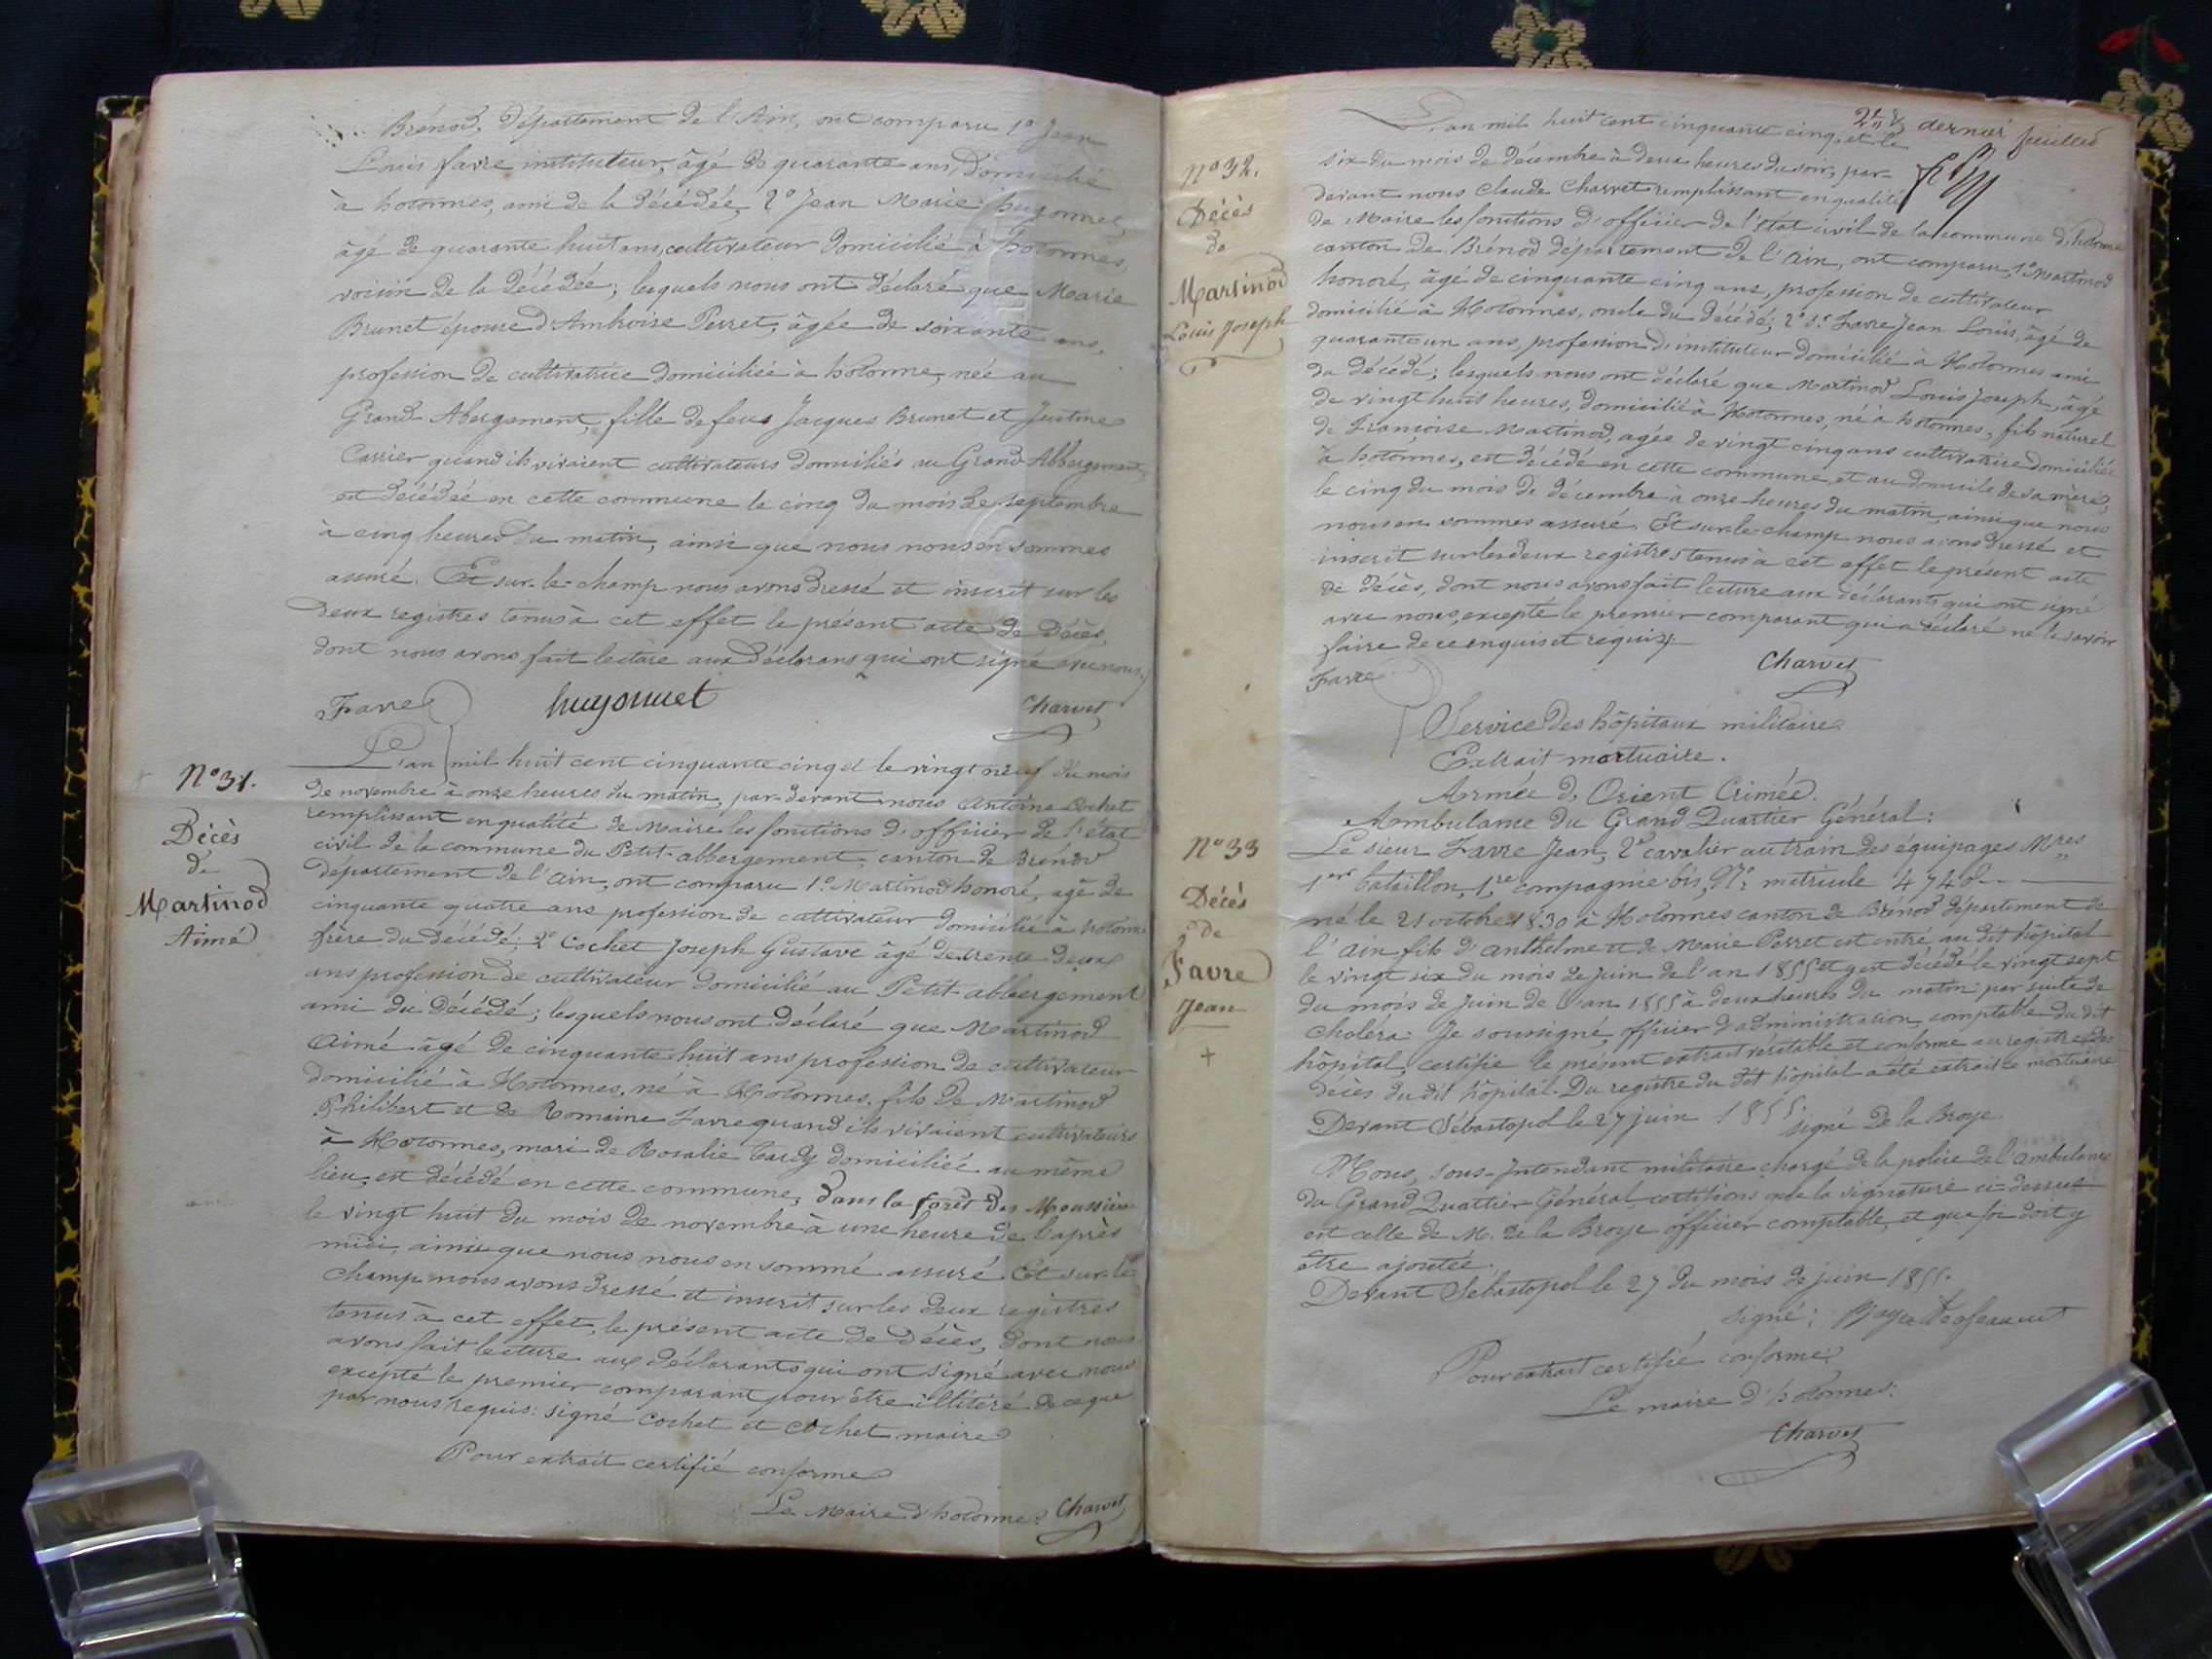 Brénod, département de l'Ain, ont comparu 1º Jean
Louis favre instituteur, âgé de quarante ans, domicilié
à hotonnes, ami de la décédée, 2º Jean Marie huyonnet,
âgé de quarante huit ans, cultivateur domicilié à hotonnes,
voisin de la décédée; lesquels nous ont déclaré que Marie
Brunet épouse d'Ambroise Perret, âgée de soixante ans,
profession de cultivatrice domiciliée à hotonne, née au
Grand Abergement, fille de feus Jacques Brunet et Justine
Carrier quand ils vivaient cultivateurs domiciliés au Grand Abbergement
est décédée en cette commune le cinq du mois de septembre
à cinq heures du matin, ainsi que nous nous en sommes
assuré. Et sur-le-champ nous avons dressé et inscrit sur les
deux registres tenus à cet effet le présent acte de décès,
dont nous avons fait lecture aux déclarans qui ont signé avec nous.
Favre huyonnet Charvet
Nº 31.
Décès
de
Martinod
Aimé
L'an mil huit cent cinquante cinq et le vingt neuf du mois
de novembre à onze heures du matin, par-devant nous Antoine Cochet
remplissant en qualité de Maire les fonctions d'officier de l'état
civil de la commune du Petit-abbergement, canton de Brénod
département de l'ain, ont comparu 1º Martinod honoré, âgé de
cinquante quatre ans profession de cultivateur domicilié à hotonne
frère du décédé; 2º Cochet Joseph Gustave âgé de trente deux
ans profession de cultivateur domicilié au Petit-abbergement
ami du décédé; lesquels nous ont déclaré que Martinod
Aimé âgé de cinquante huit ans profession de cultivateur
domicilié à Hotonnes, né à Hotonnes, fils de Martinod
Philibert et de Romaine Favre quand ils vivaient cultivateurs
à Hotonnes, mari de Rosalie Tardy domiciliée au même
lieu, est décédé en cette commune, dans la forêt des Moussières
le vingt huit du mois de novembre à une heure de l'après
midi, ainsi que nous nous en sommé assuré. Et sur-le
champ nous avons dressé et inscrit sur les deux registres
tenus à cet effet, le présent acte de décès, dont nous
avons fait lecture aux déclarants qui ont signé avec nous
excepté le premier comparant pour être illitéré de ce que
par nous requis: signé Cochet et Cochet maire
Pour extrait certifié conforme
Le Maire d'hotonne Charvet
2e & dernier feuillet
Nº 32.
Décès
de
Martinod
Louis Joseph
L'an mil huit cent cinquante cinq et le
six du mois de décembre à deux heures du soir, par-
devant nous Claude Charvet remplissant en qualité
de Maire les fonctions d'officier de l'état civil de la commune d'hotonne
canton de Brénod département de l'ain, ont comparu, 1º Martinod
honoré, âgé de cinquante cinq ans, profession de cultivateur
domicilié à Hotonnes, oncle du décédé; 2º Sr Favre Jean Louis, âgé de
quarante un ans, profession d'instituteur domicilié à Hotonnes ami
du décédé; lesquels nous ont déclaré que Martinod Louis Joseph, âgé
de vingt huit heures, domicilié à Hotonnes, né à hotonnes, fils naturel
de Françoise Martinod, agée de vingt cinq ans cultivatrice domiciliée
à hotonnes, est décédé en cette commune, et au domicile de sa mère,
le cinq du mois de décembre à onze heures du matin, ainsi que nous
nous en sommes assuré. Et sur-le-champ nous avons dressé et
inscrit sur les deux registres tenus à cet effet le présent acte
de décès, dont nous avons fait lecture aux déclarants qui ont signé
avec nous, excepté le premier comparant qui a déclaré ne le savoir
faire de ce enquis et requis.
Favre Charvet
Nº 33
Décès
de
Favre
Jean
+
Service des hôpitaux militaires.
Extrait mortuaire.
Armée d'Orient Crimée.
Ambulance du Grand Quartier Général:
Le sieur Favre Jean, 2e cavalier au train des équipages Mres
1er bataillon, 1re compagnie bis, Nº matricule 4748
né le 21 octobre 1830 à Hotonnes canton de Brénod département de
l'ain fils d'anthelme et de Marie Perret est entré au dit hôpital
le vingt six du mois de juin de l'an 1855 et y est décédé le vingt sept
du mois de juin de l'an 1855 à deux heures du matin par suite de
choléra. Je soussigné, officier d'administration comptable du dit
hôpital, certifie le présent extrait véritable et conforme au registre des
décès du dit hôpital. Du registre du dit hôpital a été extrait le mortuaire
Devant Sébastopol le 27 juin 1855. signé De la Broye
Nous, Sous-Intendant militaire chargé de la police de l'ambulance
du Grand Quartier Général certifions que la signature ci-dessus
est celle de M. de la Broye officier comptable, et que foi doit y
être ajoutée.
Devant Sébastopol le 27 du mois de juin 1855.
signé:
Pour extrait certifié conforme:
Le maire d'hotonnes:
Charvet